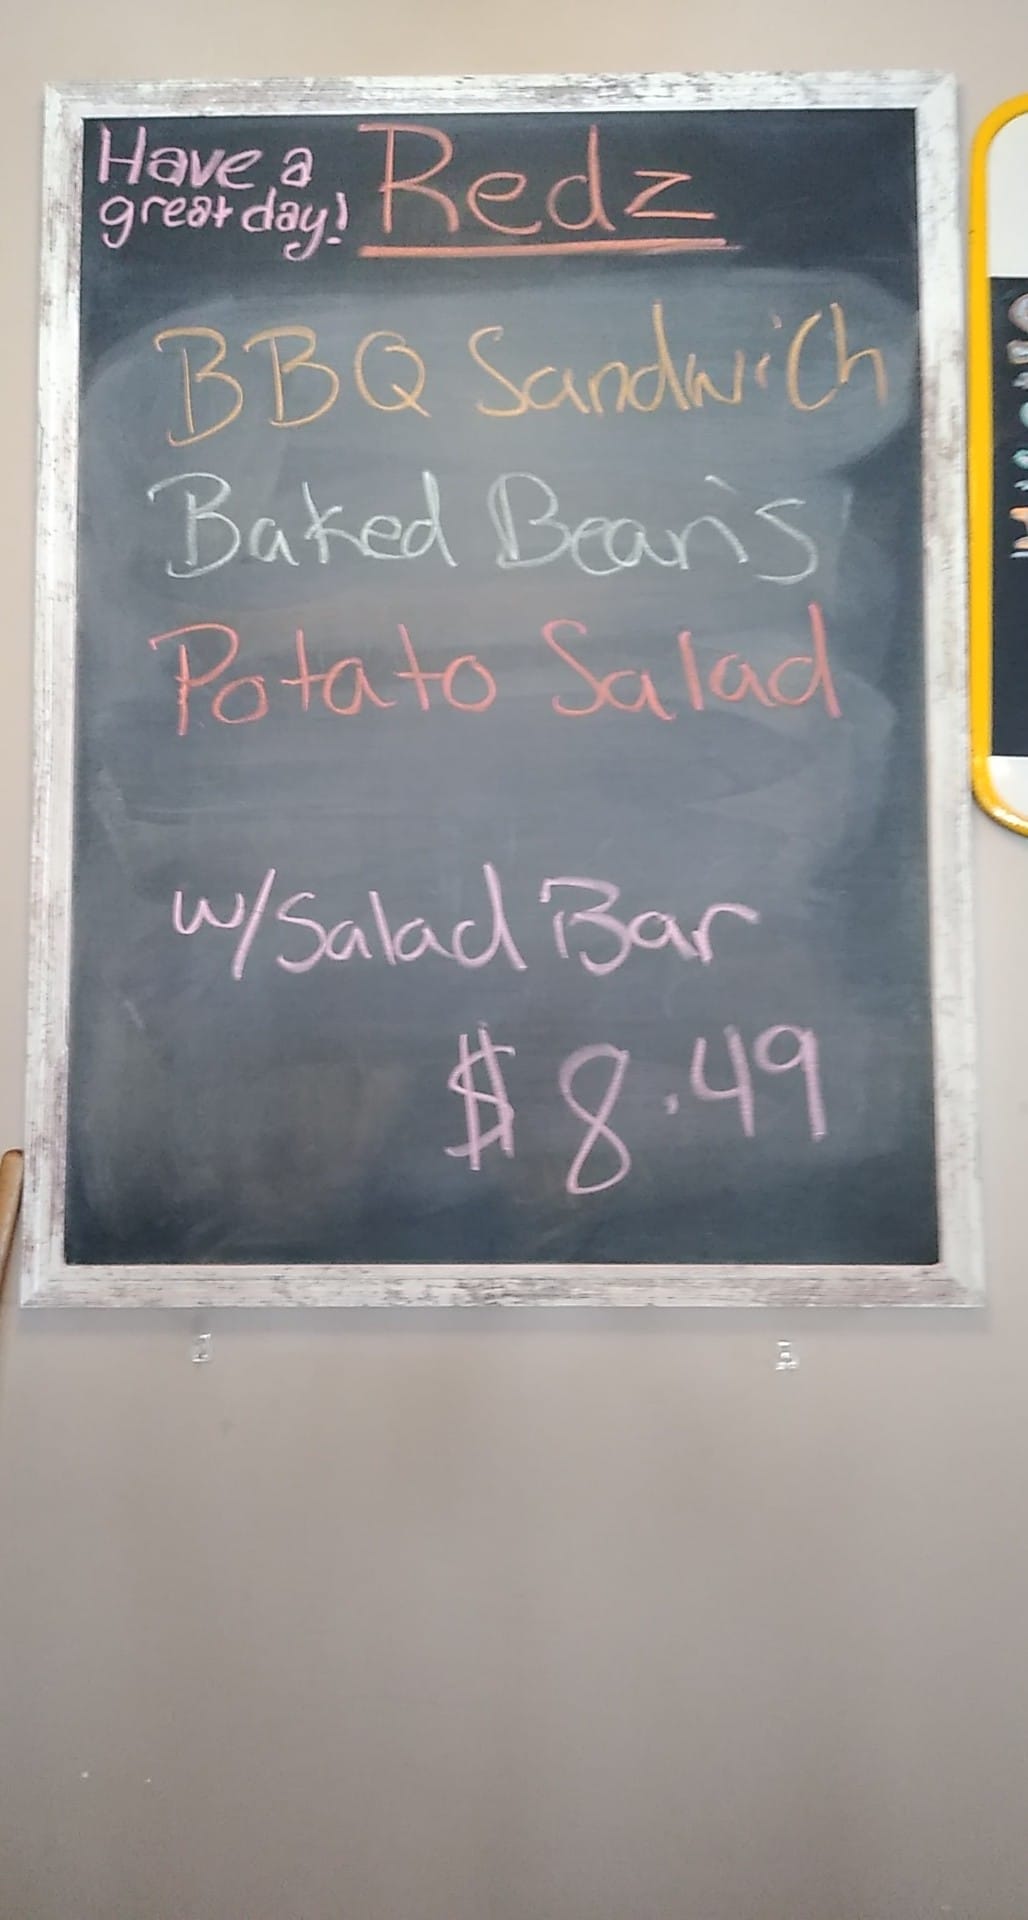 Have a
great day!
Redz
BBQ Sandwich
Baked Bean's
Potato Salad
w/Salad Bar
$8.49